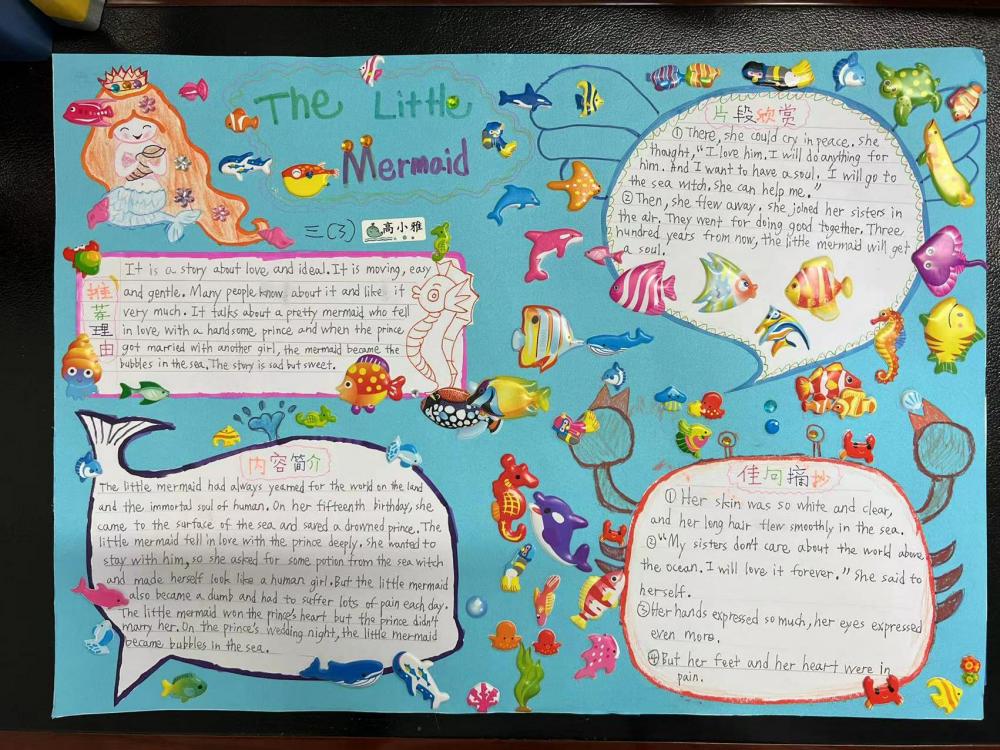 The Little
Mermaid
三(3) 高小雅
推荐理由
It is a story about love and ideal. It is moving, easy
and gentle. Many people know about it and like it
very much. It talks about a pretty mermaid who fell
in love with a handsome prince and when the prince
got married with another girl, the mermaid became the
bubbles in the sea. The story is sad but sweet.
片段欣赏
① There, she could cry in peace. She
thought, "I love him. I will do anything for
him. And I want to have a soul. I will go to
the sea witch. She can help me."
② Then, she flew away. she joined her sisters in
the air. They went for doing good together. Three
hundred years from now, the little mermaid will get
a soul.
内容简介
The little mermaid had always yearned for the world on the land
and the immortal soul of human. On her fifteenth birthday, she
came to the surface of the sea and saved a drowned prince. The
little mermaid fell in love with the prince deeply. She wanted to
stay with him, so she asked for some potion from the sea witch
and made herself look like a human girl. But the little mermaid
also became a dumb and had to suffer lots of pain each day.
The little mermaid won the prince's heart but the prince didn't
marry her. On the prince's wedding night, the little mermaid
became bubbles in the sea.
佳句摘抄
① Her skin was so white and clear,
and her long hair flew smoothly in the sea.
② "My sisters don't care about the world above
the ocean. I will love it forever." She said to
herself.
③ Her hands expressed so much, her eyes expressed
even more.
④ But her feet and her heart were in
pain.